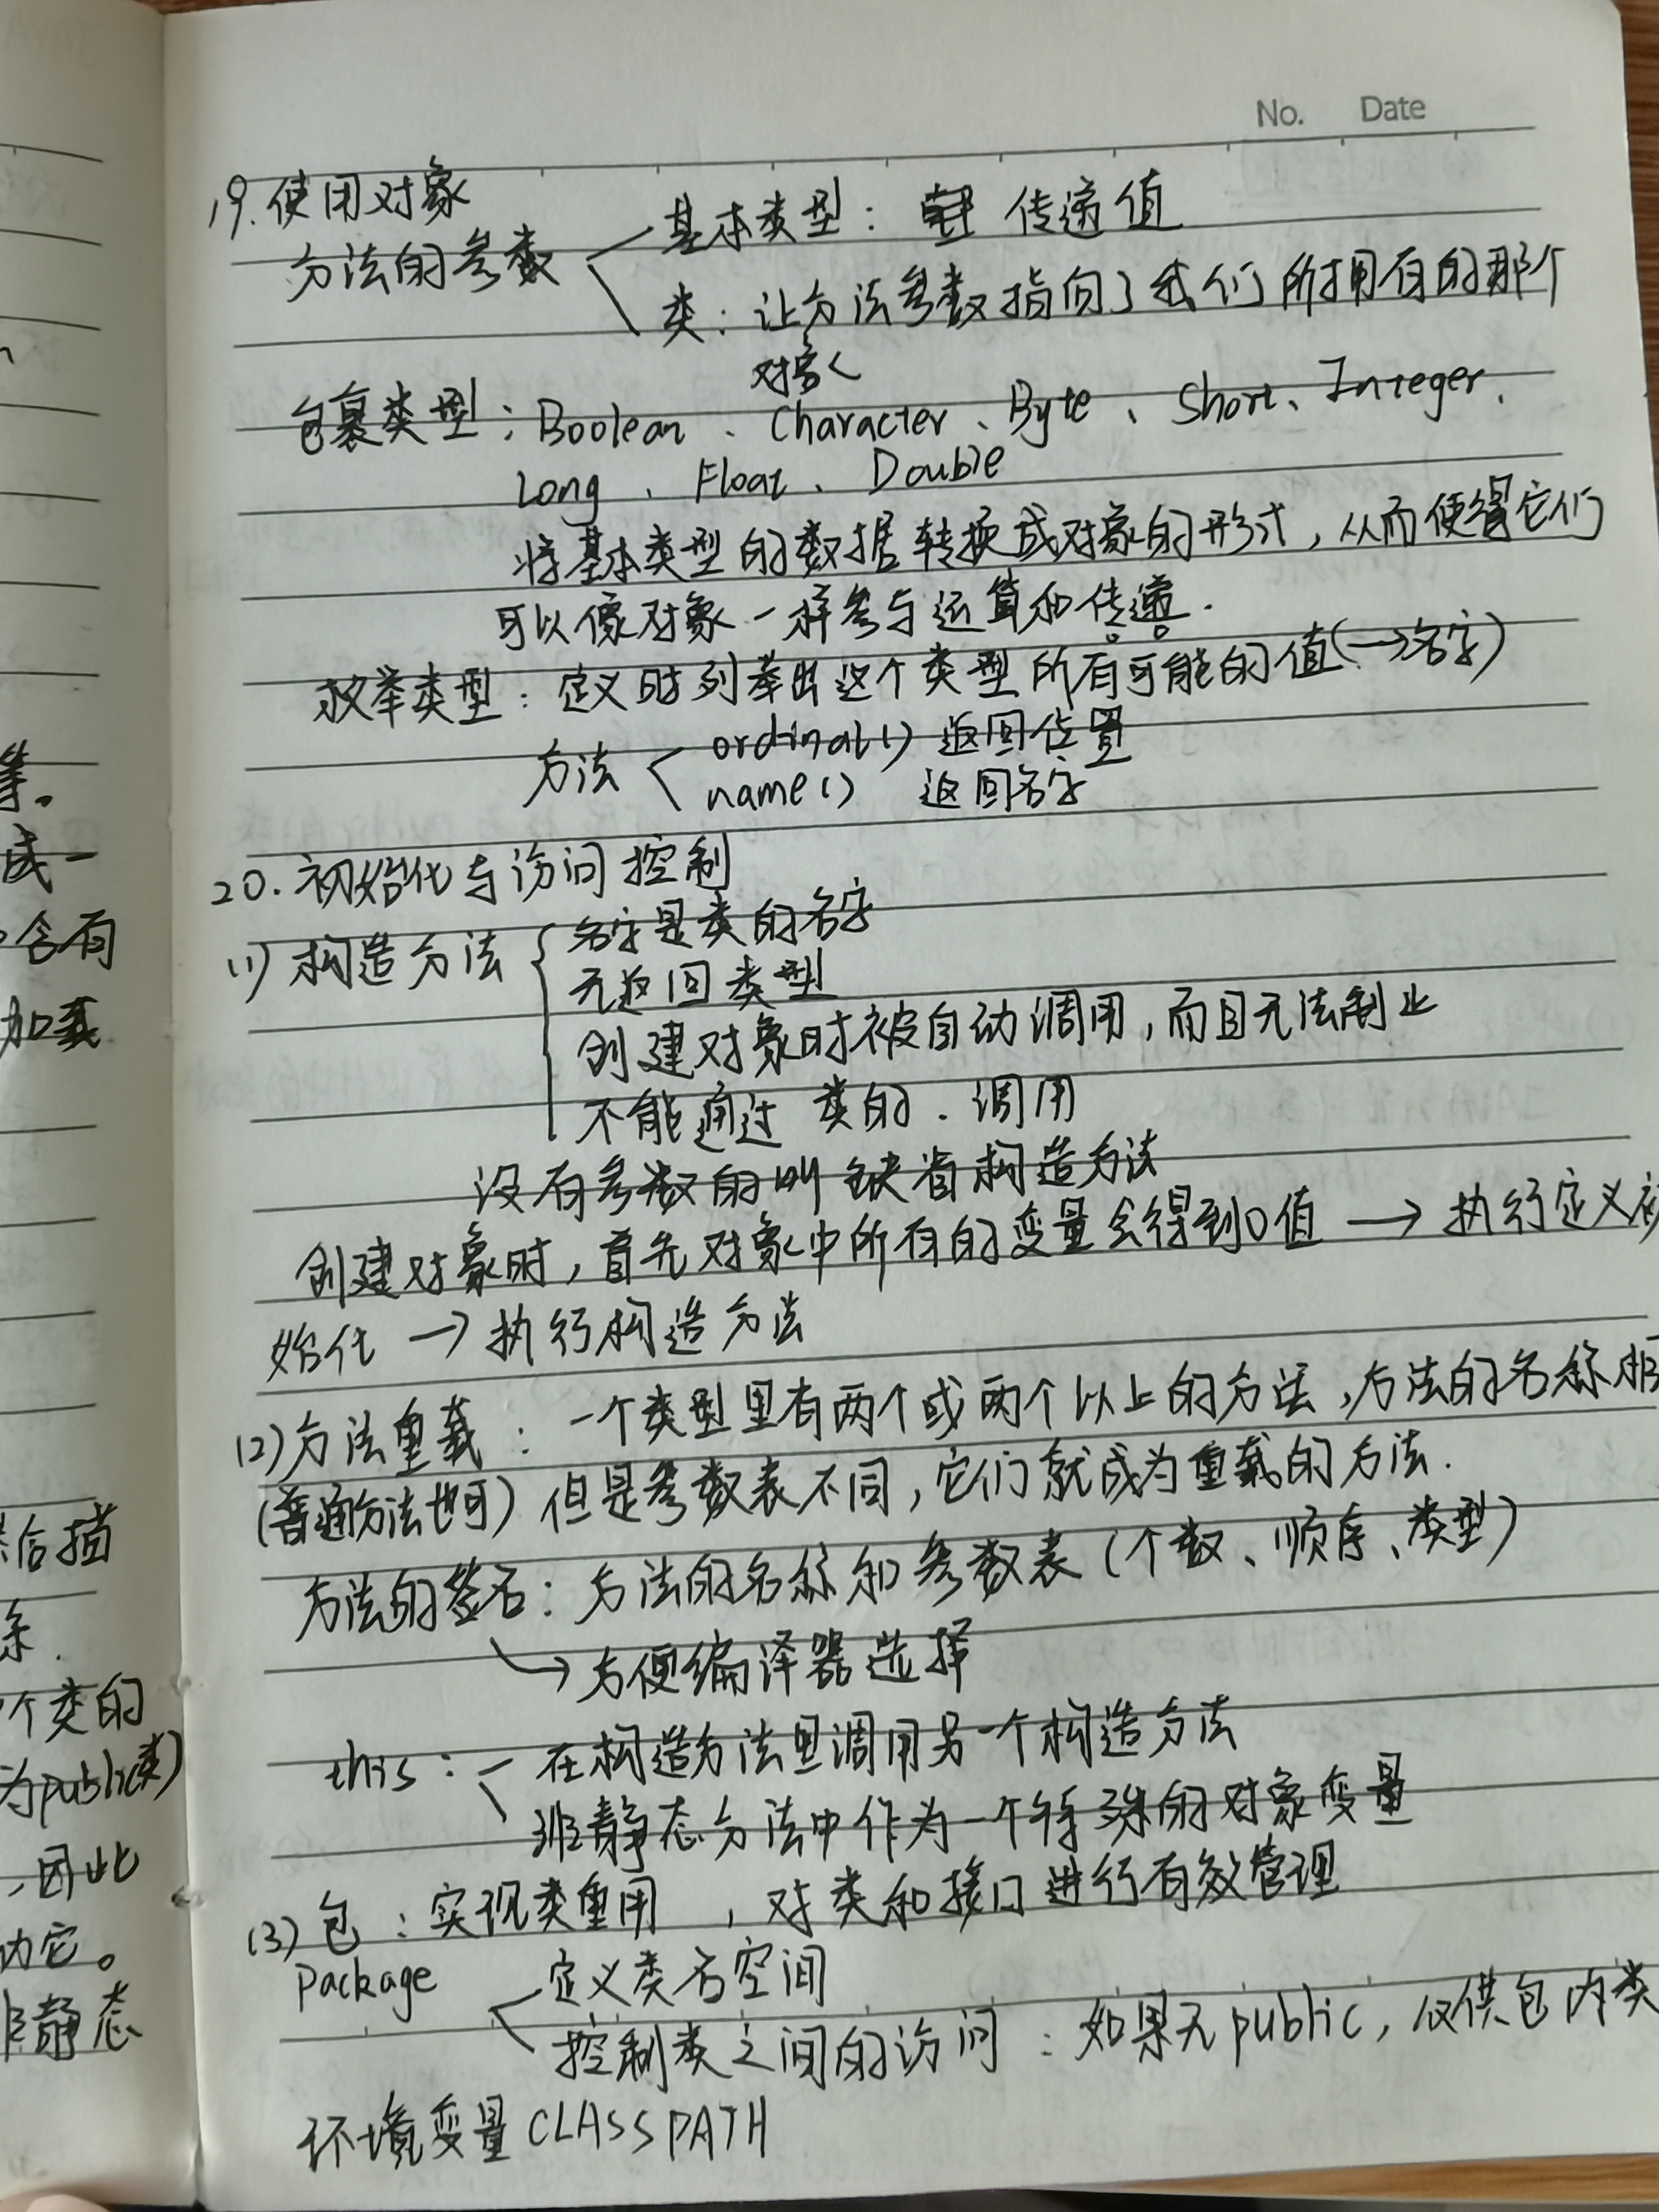 No. Date
19.使用对象
方法的参数 基本类型： 传递值
类：让方法参数指向了我们所拥有的那个
对象
包裹类型：Boolean、Character、Byte、Short、Integer、
Long、Float、Double
将基本类型的数据转换成对象的形式，从而使得它们
可以像对象一样参与运算和传递.
枚举类型：定义时列举出这个类型所有可能的值(→名字)
方法 ordinal() 返回位置
name() 返回名字
20.初始化与访问控制
(1)构造方法 名字是类的名字
无返回类型
创建对象时被自动调用，而且无法制止
不能通过 类的 . 调用
没有参数的叫缺省构造方法
创建对象时，首先对象中所有的变量会得到0值 → 执行定义初
始化 → 执行构造方法
(2)方法重载：一个类型里有两个或两个以上的方法，方法的名称相
(普通方法也可) 但是参数表不同，它们就成为重载的方法.
方法的签名：方法的名称和参数表(个数、顺序、类型)
→方便编译器选择
this： 在构造方法里调用另一个构造方法
非静态方法中作为一个特殊的对象变量
(3)包：实现类重用 ，对类和接口进行有效管理
Package 定义类名空间
控制类之间的访问：如果无public，仅供包内类
环境变量CLASSPATH
等。
成一
含有
加载
结合描
系.
个类的
为public类)
，因此
动它。
非静态